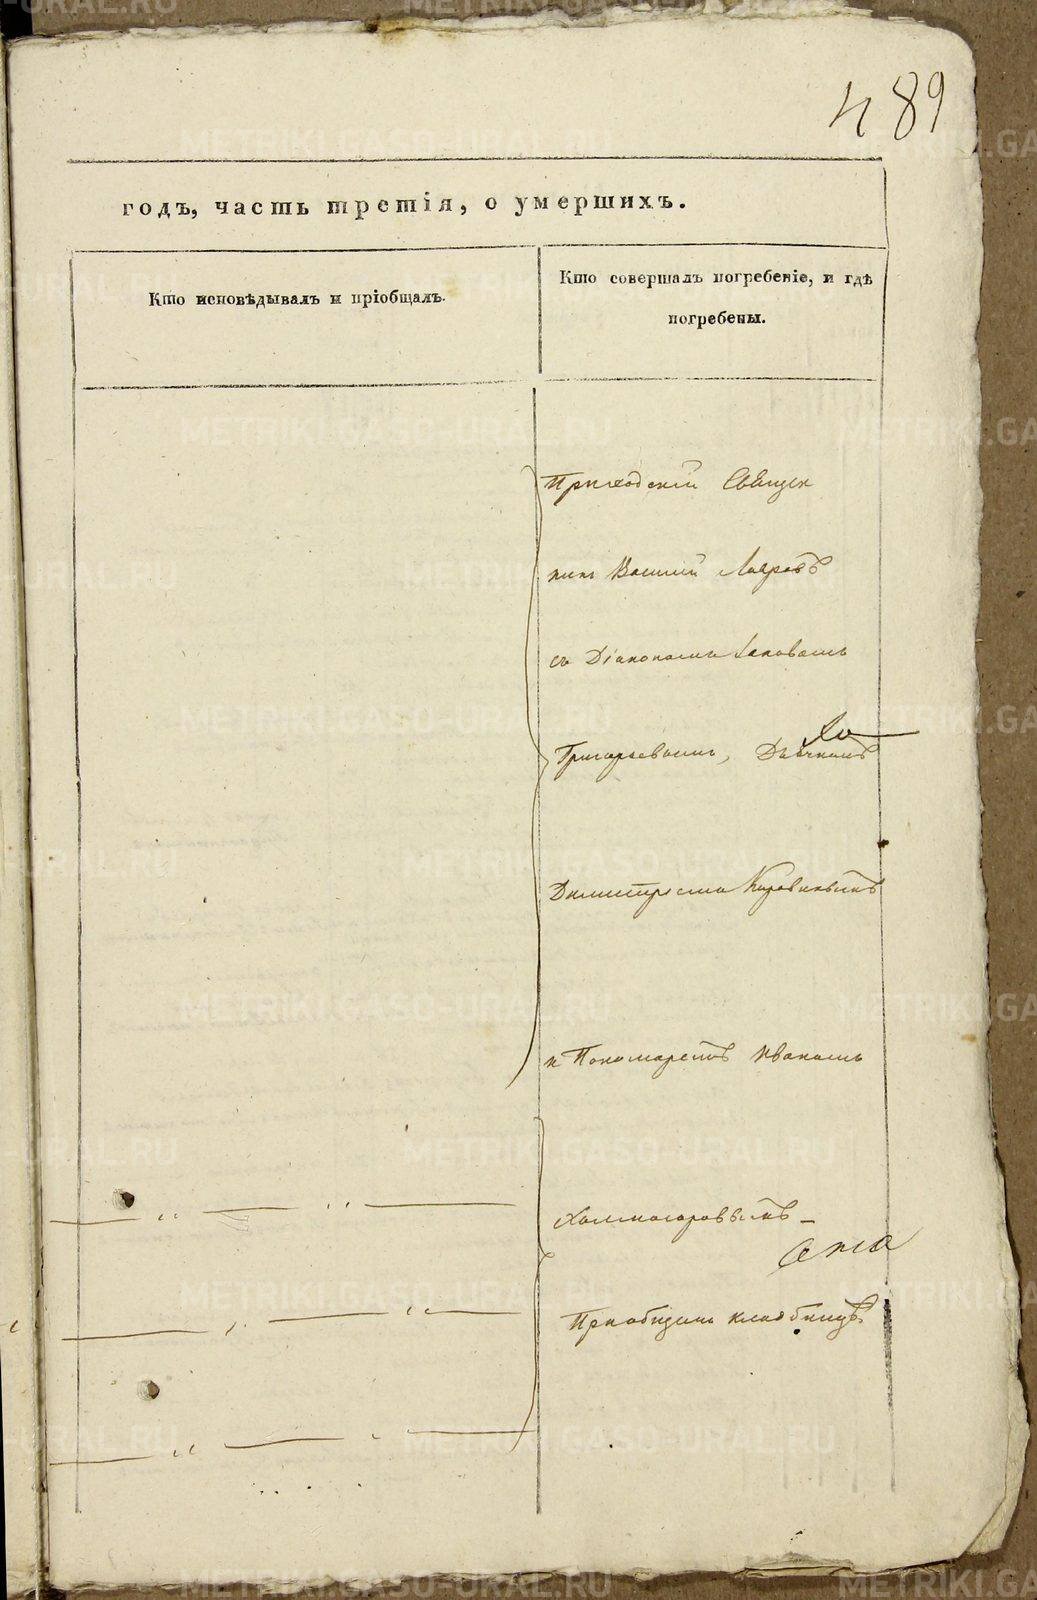 489
годъ, часть третія, о умершихъ.
Кто исповѣдывалъ и пріобщалъ.
Кто совершалъ погребеніе, и гдѣ
погребены.
Приходскій Свѣщен
никъ Василій Лавровъ
съ Діакономъ Іаковомъ
Григорьевымъ, Дьячкомъ
Димитріемъ Коровинымъ
и Пономаремъ Иваномъ
Холмогоровымъ
на
Приобщемъ кладбищѣ
METRIKI.GASO-URAL.RU